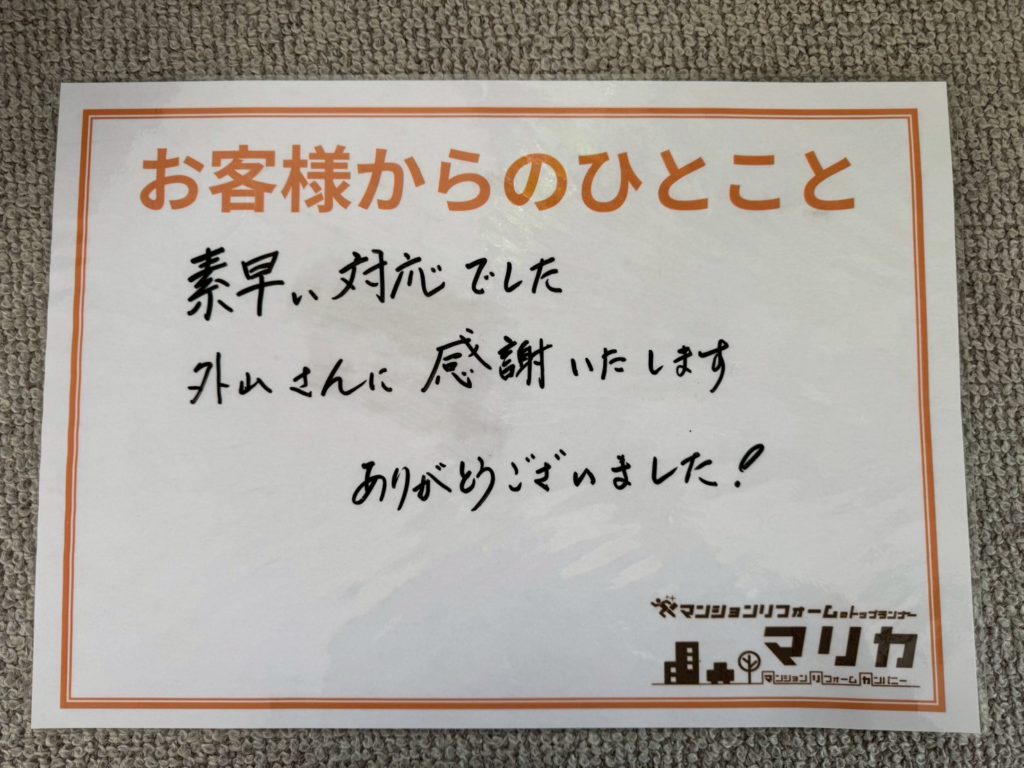 お客様からのひとこと
素早い対応でした
外山さんに感謝いたします
ありがとうございました!
マンションリフォームのトップランナー
マリカ
マンションリフォームカンパニー